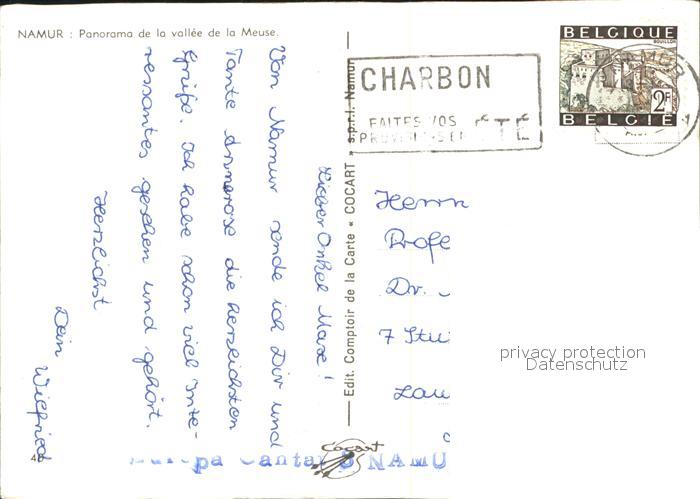 NAMUR : Panorama de la vallée de la Meuse.
CHARBON
FAITES VOS
ÉTÉ
BELGIQUE
BOUILLON
2F
BELGIË
Lieber Onkel Max!
Von Namur sende ich Dir und
Tante Annerose die herzlichsten
Grüße. Ich habe schon viel Inte-
ressantes gesehen und gehört.
Herzlichst
Dein Wilfried
Edit. Comptoir de la Carte « COCART » s.p.r.l. Namur
Herrn
Profe
Dr.
7 Stu
Lau
privacy protection
Datenschutz
Cocart
pa Canta NAMU